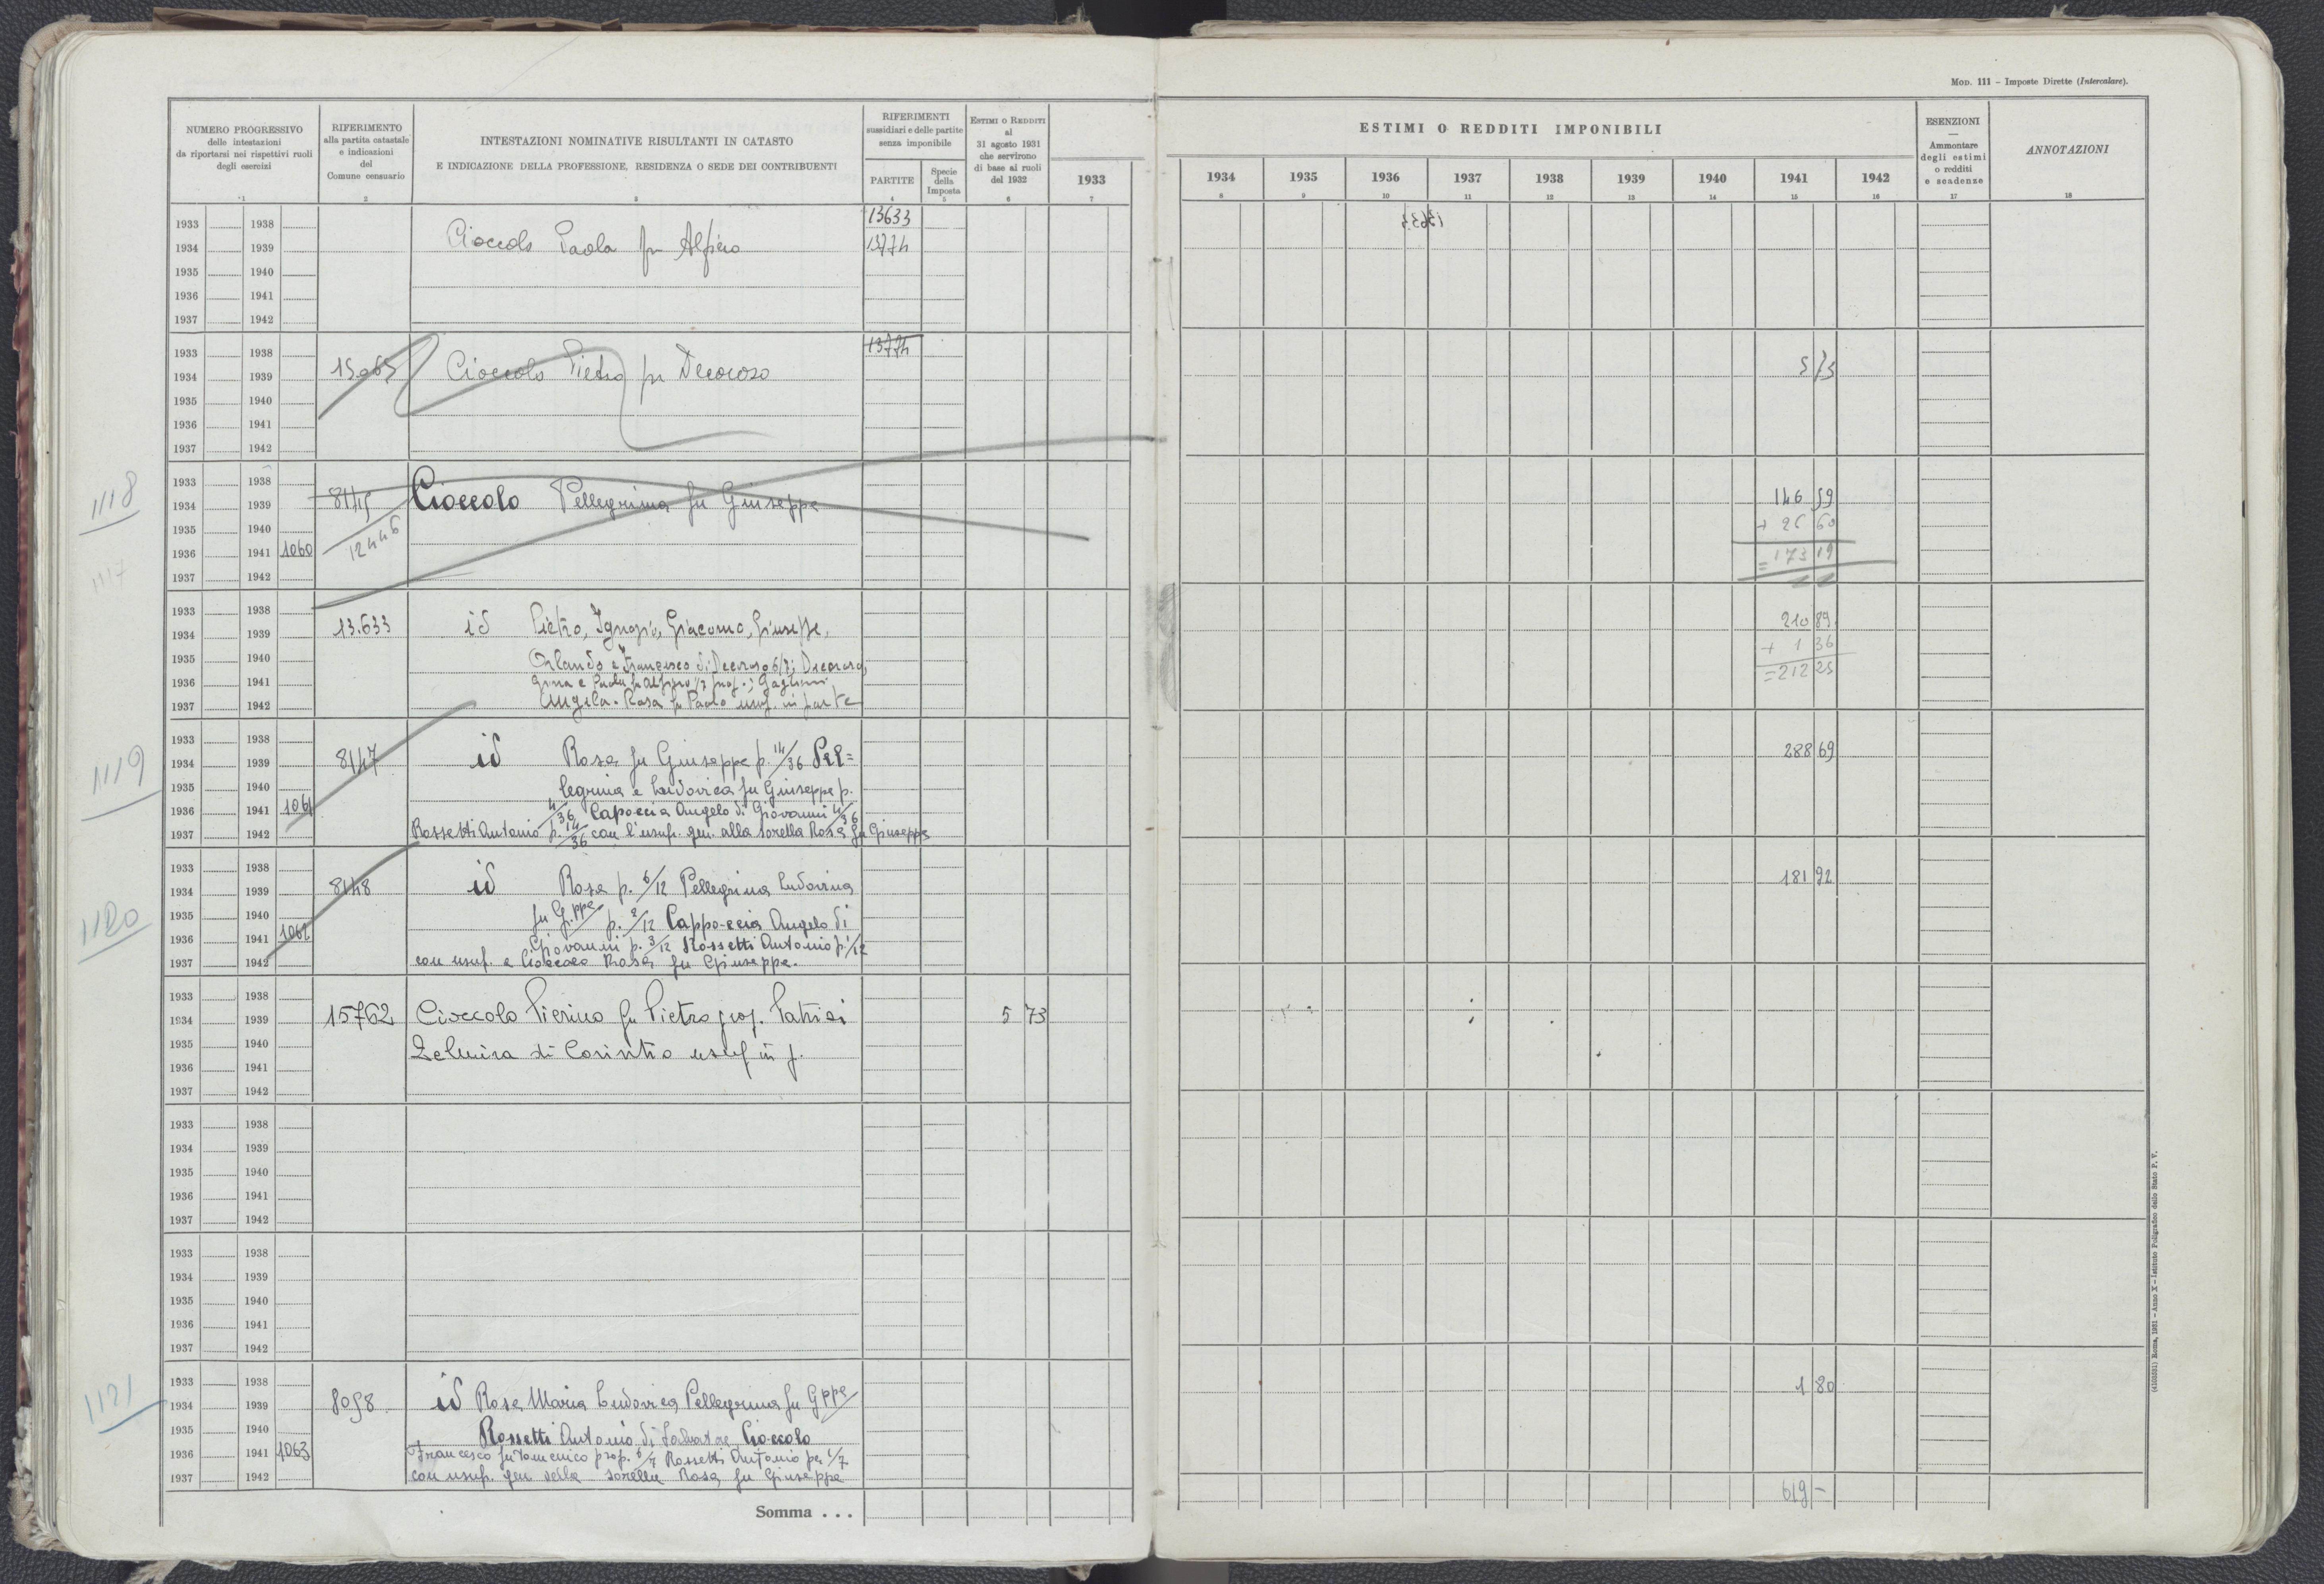 MOD. 111 – Imposte Dirette (Intercalare).
NUMERO PROGRESSIVO
delle intestazioni
da riportarsi nei rispettivi ruoli
degli esercizi
1
RIFERIMENTO
alla partita catastale
e indicazioni
del
Comune censuario
2
INTESTAZIONI NOMINATIVE RISULTANTI IN CATASTO
E INDICAZIONE DELLA PROFESSIONE, RESIDENZA O SEDE DEI CONTRIBUENTI
3
RIFERIMENTI
sussidiari e delle partite
senza imponibile
PARTITE
4
Specie
della
Imposta
5
ESTIMI O REDDITI
al
31 agosto 1931
che servirono
di base ai ruoli
del 1932
6
1933
7
ESTIMI O REDDITI IMPONIBILI
1934 1935 1936 1937 1938 1939 1940 1941 1942
8 9 10 11 12 13 14 15 16
ESENZIONI
—
Ammontare
degli estimi
o redditi
e scadenze
17
ANNOTAZIONI
18
1933 1938 13633
1934 1939 Cioccolo Paola fu Alfiero 13774
1935 1940
1936 1941
1937 1942
1933 1938 13774
1934 1939 15065 Cioccolo Pietro fu Decoroso 5 73
1935 1940
1936 1941
1937 1942
1118
1933 1938
1934 1939 8145 Cioccolo Pellegrina fu Giuseppe 146 59
1935 1940 12446 + 26 60
1936 1941 1060 = 173 19
1937 1942
1117
1933 1938
1934 1939 13.633 id Pietro, Ignazio, Giacomo, Giuseppe, 210 89
1935 1940 Orlando e Francesco di Decoroso 6/7; Decoroso, + 1 36
1936 1941 Gina e Paola fu Alfiero 1/7 prop.; = 212 25
1937 1942 Angela Rosa fu Paolo usuf. in parte
1119
1933 1938
1934 1939 8147 id Rosa fu Giuseppe p. 14/36 Pel= 288 69
1935 1940 legrina e Ludovica fu Giuseppe p.
1936 1941 1061 4/36 Capoccia Angelo di Giovanni 4/36
1937 1942 Rossetti Antonio p. 14/36 con l'usuf. gen. alla sorella Rosa fu Giuseppe
1120
1933 1938
1934 1939 8148 id Rosa p. 6/12 Pellegrina Ludovina 181 92
1935 1940 fu G.ppe p. 2/12 Cappoccia Angelo di
1936 1941 1062 Giovanni p. 3/12 Rossetti Antonio p. 1/12
1937 1942 con usuf. a Cioccolo Rosa fu Giuseppe.
1933 1938
1934 1939 15762 Cioccolo Pierino fu Pietro prop. Patrizi 5 73
1935 1940 Zelmira di Corintio usuf in p.
1936 1941
1937 1942
1933 1938
1934 1939
1935 1940
1936 1941
1937 1942
1933 1938
1934 1939
1935 1940
1936 1941
1937 1942
1121
1933 1938
1934 1939 8098 id Rosa Maria Ludovica Pellegrina fu Gppe 1 80
1935 1940 Rossetti Antonio di Salvatore Cioccolo
1936 1941 1063 Francesco fu Domenico prop. 6/7 Rossetti Antonio per 1/7
1937 1942 con usuf. gen. della sorella Rosa fu Giuseppe
Somma . . . 619 –
(4103531) Roma, 1931 – Anno X – Istituto Poligrafico dello Stato P. V.